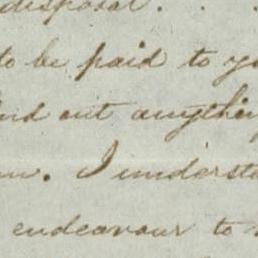 disposal . .
to be paid to yo
ind out anythin
m. I understa
endeavour to